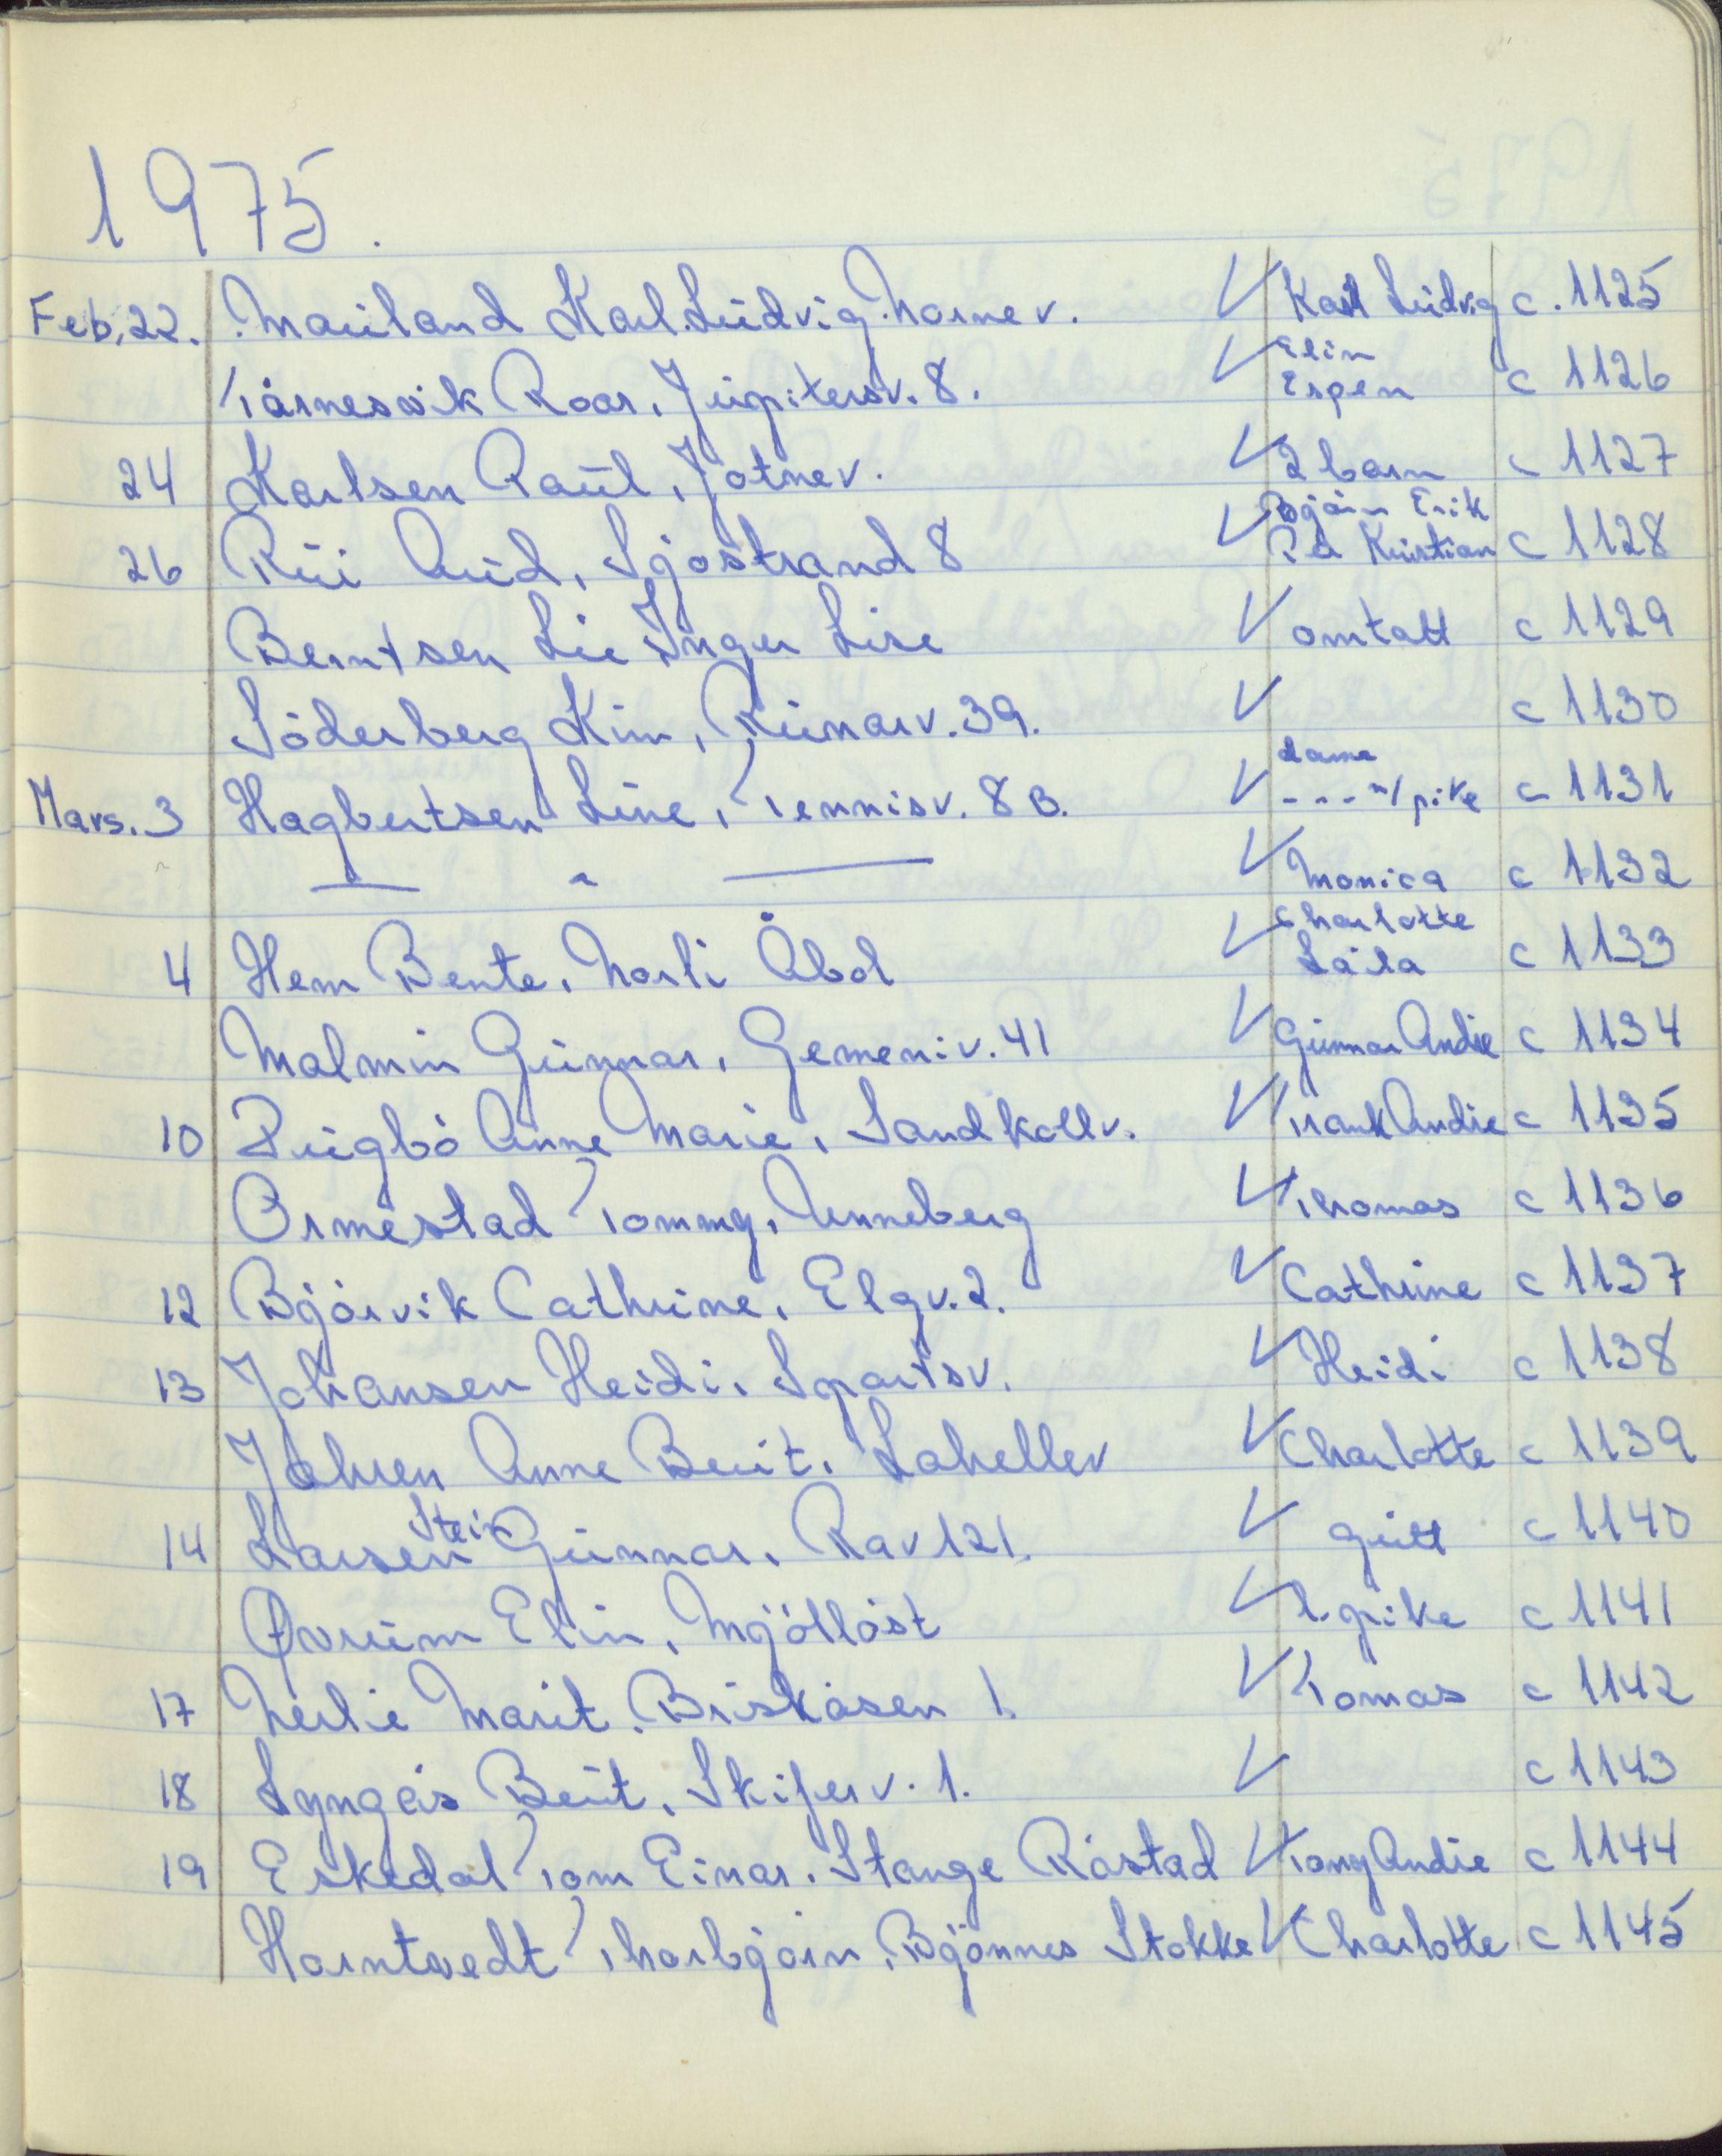 1975.
Feb. 22. Mauland Karl Ludvig. Nornev. ✓ Karl Ludvig c. 1125
Tårnesvik Roar, Jupitersv. 8. ✓ Elin Espen c 1126
24 Karlsen Paul, Jotnev. ✓ 2 barn c 1127
26 Rui Aud, Sjøstrand 8 ✓ Bjørn Erik Per Kristian c 1128
Berntsen Lie Inger Lise ✓ omtatt c 1129
Söderberg Kim, Runarv. 39. ✓ c 1130
Mars. 3 Hagbertsen Line, Tennisv. 8 B. ✓ dame --- m/pike c 1131
— " — ✓ Monica c 1132
4 Hem Bente, Norli Åbol ✓ Charlotte Laila c 1133
Malmin Gunnar, Gemeniv. 41 ✓ Gunnar Andre c 1134
10 Puigbo Anne Marie, Sandkollv. ✓ Frank Andre c 1135
Ormestad Tommy, Unneberg ✓ Thomas c 1136
12 Bjørvik Cathrine, Elgv. 2. ✓ Cathrine c 1137
13 Johansen Heidi, Sportsv. ✓ Heidi c 1138
Jahren Anne Berit, Lahellev ✓ Charlotte c 1139
14 Larsen Stein Gunnar, Rav 121. ✓ gutt c 1140
Øvrum Elin, Mjølløst ✓ 1. pike c 1141
17 Nerlie Marit, Briskåsen 1. ✓ Tomas c 1142
18 Lyngås Berit, Skiferv. 1. ✓ c 1143
19 Eskedal Tom Einar. Stange Råstad ✓ Tony Andre c 1144
Horntvedt Thorbjørn, Bjønnes Stokke ✓ Charlotte c 1145